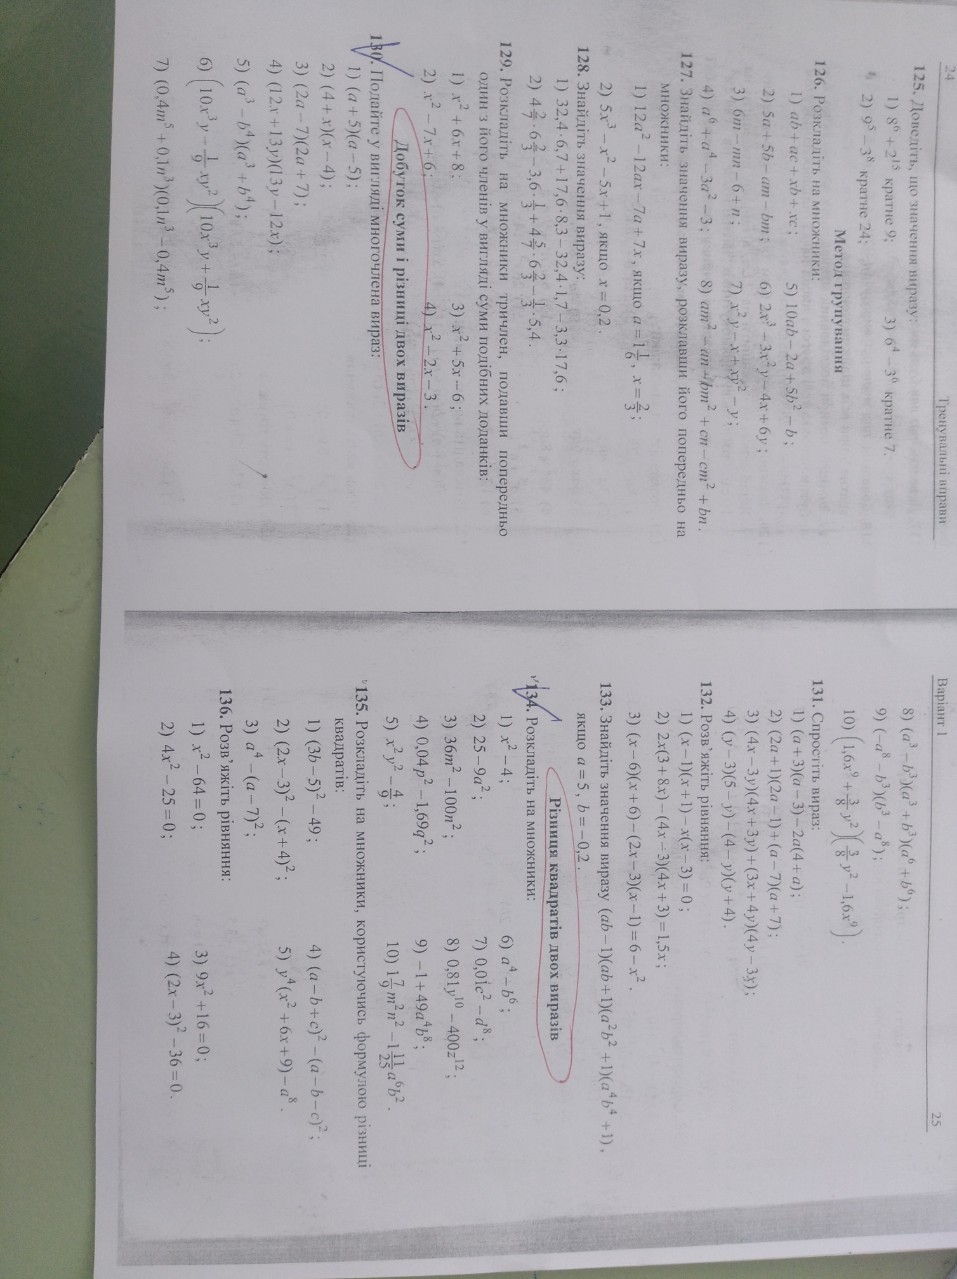 24
Тренувальні вправи
125. Доведіть, що значення виразу:
1) 8⁶ + 2¹⁵ кратне 9;
3) 6⁴ − 3⁶ кратне 7.
2) 9⁵ − 3⁸ кратне 24;
Метод групування
126. Розкладіть на множники:
1) ab + ac + xb + xc;
5) 10ab − 2a + 5b² − b;
2) 5a + 5b − am − bm;
6) 2x³ − 3x²y − 4x + 6y;
3) 6m − mn − 6 + n;
7) x²y − x + xy² − y;
4) a⁶ + a⁴ − 3a² − 3;
8) am² − an + bm² + cn − cm² + bn.
127. Знайдіть значення виразу, розклавши його попередньо на
множники:
1) 12a² − 12ax − 7a + 7x, якщо a = 1 1/6, x = 2/3;
2) 5x³ − x² − 5x + 1, якщо x = 0,2.
128. Знайдіть значення виразу:
1) 32,4·6,7 + 17,6·8,3 − 32,4·1,7 − 3,3·17,6;
2) 4 2/7 · 6 2/3 − 3,6 · 1/3 + 4 5/7 · 6 2/3 − 1/3 · 5,4.
129. Розкладіть на множники тричлен, подавши попередньо
один з його членів у вигляді суми подібних доданків:
1) x² + 6x + 8;
3) x² + 5x − 6;
2) x² − 7x + 6;
4) x² − 2x − 3.
Добуток суми і різниці двох виразів
130. Подайте у вигляді многочлена вираз:
1) (a + 5)(a − 5);
2) (4 + x)(x − 4);
3) (2a − 7)(2a + 7);
4) (12x + 13y)(13y − 12x);
5) (a³ − b⁴)(a³ + b⁴);
6) (10x³y − 1/9 xy²)(10x³y + 1/9 xy²);
7) (0,4m⁵ + 0,1n³)(0,1n³ − 0,4m⁵);
Варіант 1
25
8) (a³ − b³)(a³ + b³)(a⁶ + b⁶);
9) (−a⁸ − b³)(b³ − a⁸);
10) (1,6x⁹ + 3/8 y²)(3/8 y² − 1,6x⁹).
131. Спростіть вираз:
1) (a + 3)(a − 3) − 2a(4 + a);
2) (2a + 1)(2a − 1) + (a − 7)(a + 7);
3) (4x − 3y)(4x + 3y) + (3x + 4y)(4y − 3x);
4) (y − 3)(5 − y) − (4 − y)(y + 4).
132. Розв'яжіть рівняння:
1) (x − 1)(x + 1) − x(x − 3) = 0;
2) 2x(3 + 8x) − (4x − 3)(4x + 3) = 1,5x;
3) (x − 6)(x + 6) − (2x − 3)(x − 1) = 6 − x².
133. Знайдіть значення виразу (ab − 1)(ab + 1)(a²b² + 1)(a⁴b⁴ + 1),
якщо a = 5, b = −0,2.
Різниця квадратів двох виразів
134. Розкладіть на множники:
1) x² − 4;
6) a⁴ − b⁶;
2) 25 − 9a²;
7) 0,01c² − d⁸;
3) 36m² − 100n²;
8) 0,81y¹⁰ − 400z¹²;
4) 0,04p² − 1,69q²;
9) −1 + 49a⁴b⁸;
5) x²y² − 4/9;
10) 1 7/9 m²n² − 1 11/25 a⁶b².
135. Розкладіть на множники, користуючись формулою різниці
квадратів:
1) (3b − 5)² − 49;
4) (a − b + c)² − (a − b − c)²;
2) (2x − 3)² − (x + 4)²;
5) y⁴(x² + 6x + 9) − a⁸.
3) a⁴ − (a − 7)²;
136. Розв'яжіть рівняння:
1) x² − 64 = 0;
3) 9x² + 16 = 0;
2) 4x² − 25 = 0;
4) (2x − 3)² − 36 = 0.